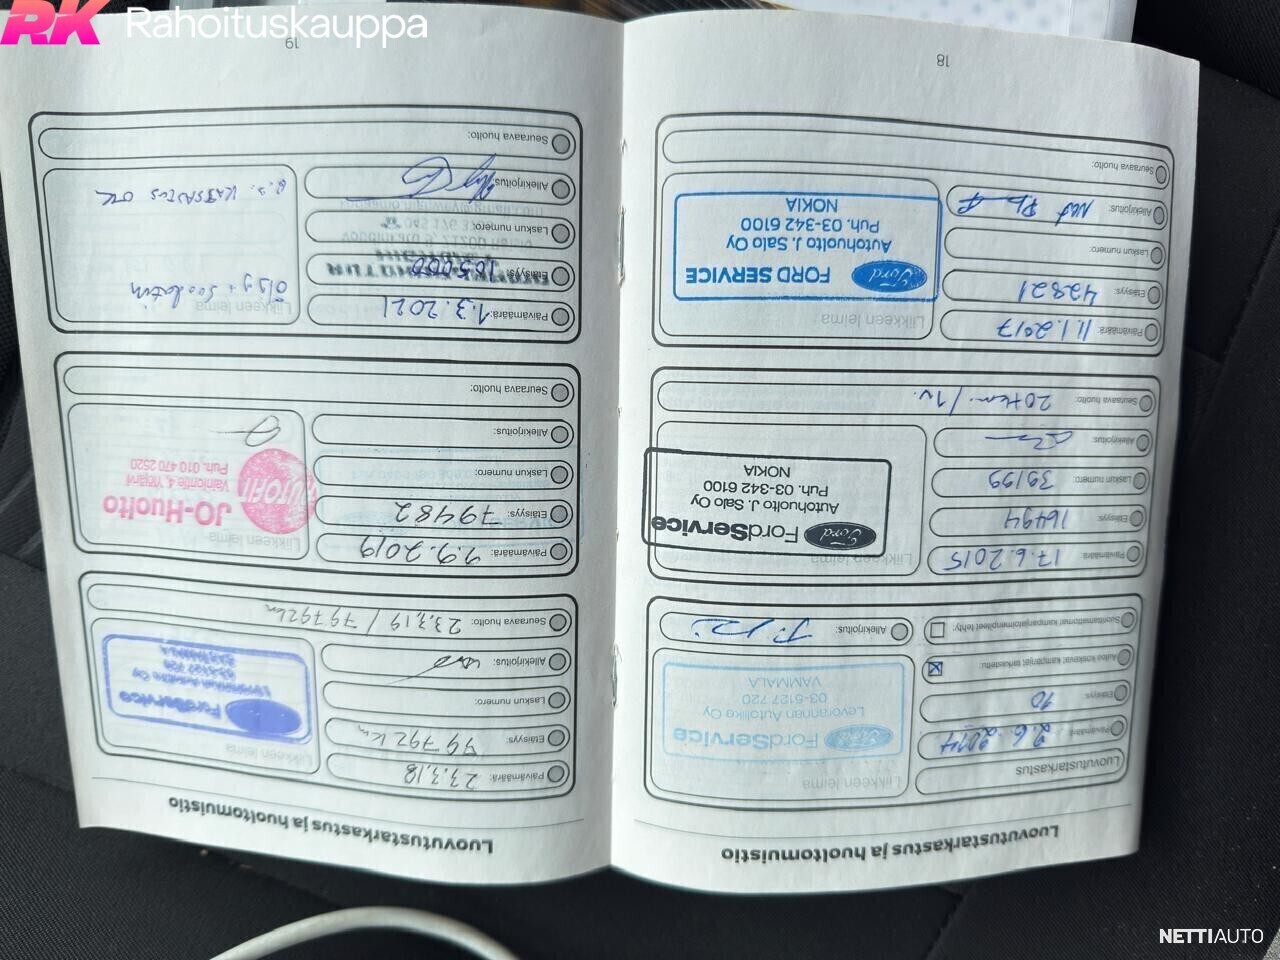 RK Rahoituskauppa
Luovutustarkastus ja huoltomuistio
Luovutustarkastus
Päivämäärä: 2.6.2014
Etäisyys: 10
Autoa koskevat kampanjat tarkastettu:
Suorittamattomat kampanjatoimenpiteet tehty:
Liikkeen leima
Ford FordService
Levorannan Autoliike Oy
03-5127 720
VAMMALA
Allekirjoitus:
Päivämäärä: 17.6.2015
Etäisyys: 16494
Laskun numero: 39199
Allekirjoitus:
Seuraava huolto: 20tkm/1v.
Liikkeen leima
Ford FordService
Autohuolto J. Salo Oy
Puh. 03-342 6100
NOKIA
Päivämäärä: 11.1.2017
Etäisyys: 42821
Laskun numero:
Allekirjoitus:
Seuraava huolto:
Liikkeen leima
Ford FORD SERVICE
Autohuolto J. Salo Oy
Puh. 03-342 6100
NOKIA
18
Luovutustarkastus ja huoltomuistio
Päivämäärä: 23.3.18
Etäisyys: 49792km
Laskun numero:
Allekirjoitus:
Seuraava huolto: 23.3.19 / 79792km
Liikkeen leima
Ford FordService
Päivämäärä: 9.9.2019
Etäisyys: 79482
Laskun numero:
Allekirjoitus:
Seuraava huolto:
Liikkeen leima
AUTOFIT
JO-Huolto
Vainiontie 4, Ylöjärvi
Puh. 010 470 2520
Päivämäärä: 1.3.2021
Etäisyys: 105000
Laskun numero:
Allekirjoitus:
Seuraava huolto:
Liikkeen leima
Öljy + suodatin
KATSASTUS OK
19
NETTIAUTO